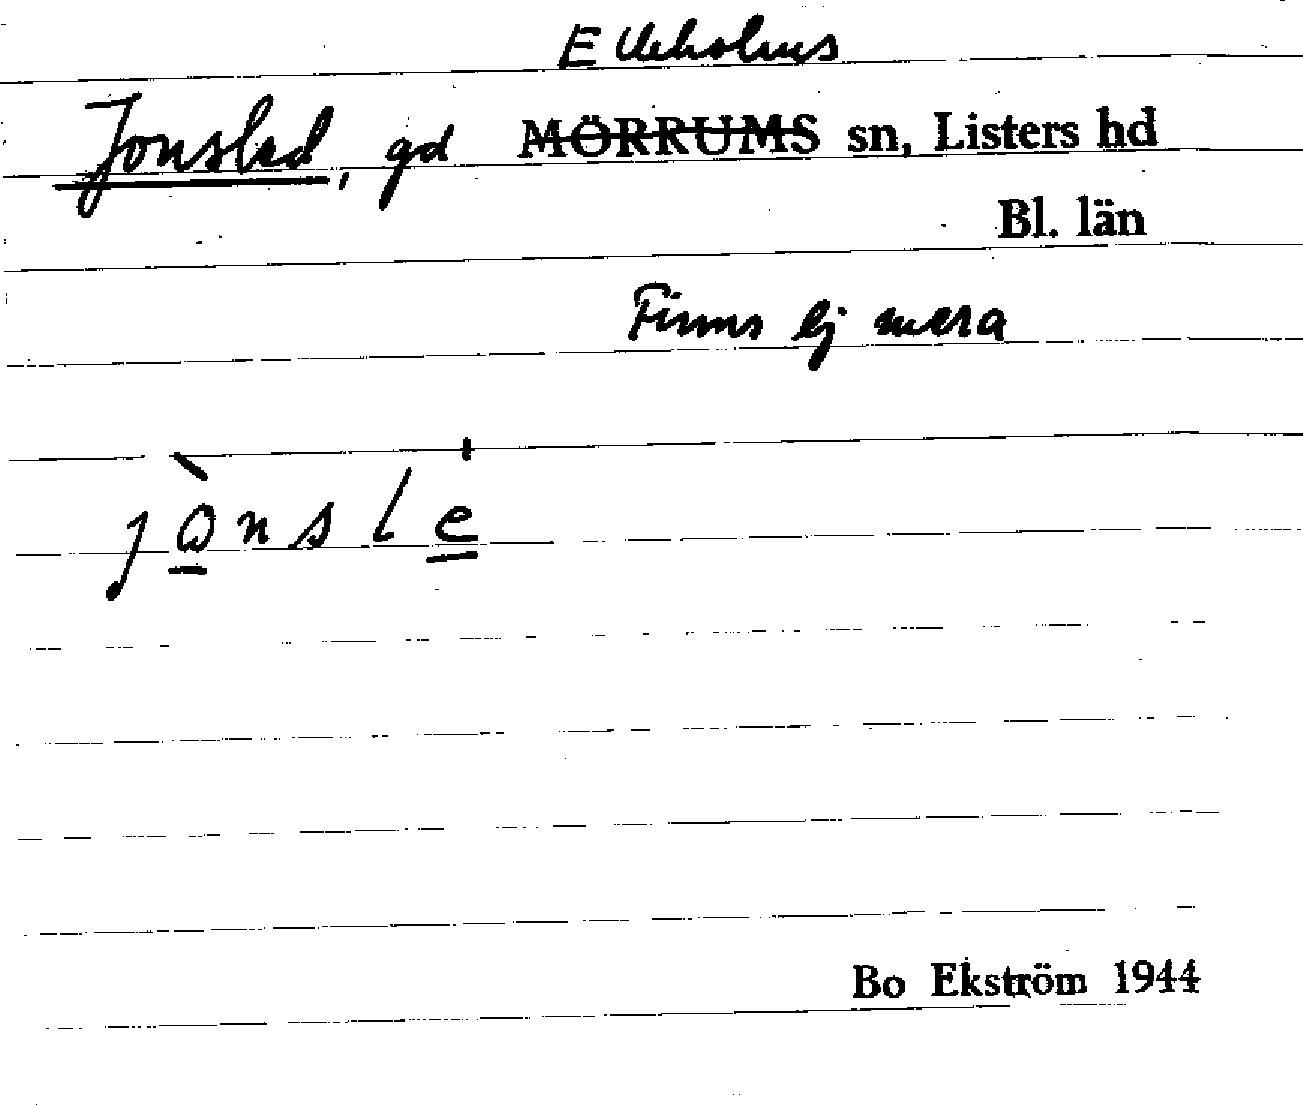 Elleholms
Jonsled, gd MÖRRUMS sn, Listers hd
Bl. län
Finns ej mera
jònsle
Bo Ekström 1944